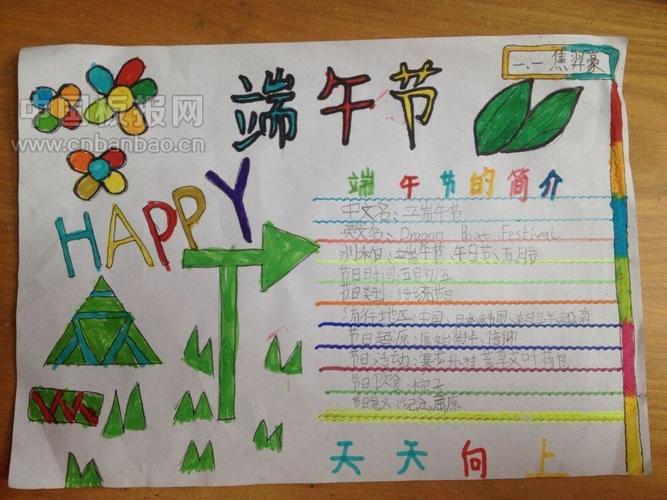 一.一 焦羿豪
端午节
中国板报网
www.cnbanbao.cn
HAPPY
端午节的简介
中文名:立端午节
英文名:Dragon Boat Festival
别称:立端午节、午日节、五月节
节日时间:五月初五
节日类型:传统节日
流行地区:中国、日本韩国、朝鲜越南
节日起源:原始崇拜、信仰
节日活动:赛龙舟挂菖蒲艾叶荷包
节日饮食:粽子
节日意义:纪念屈原
天天向上